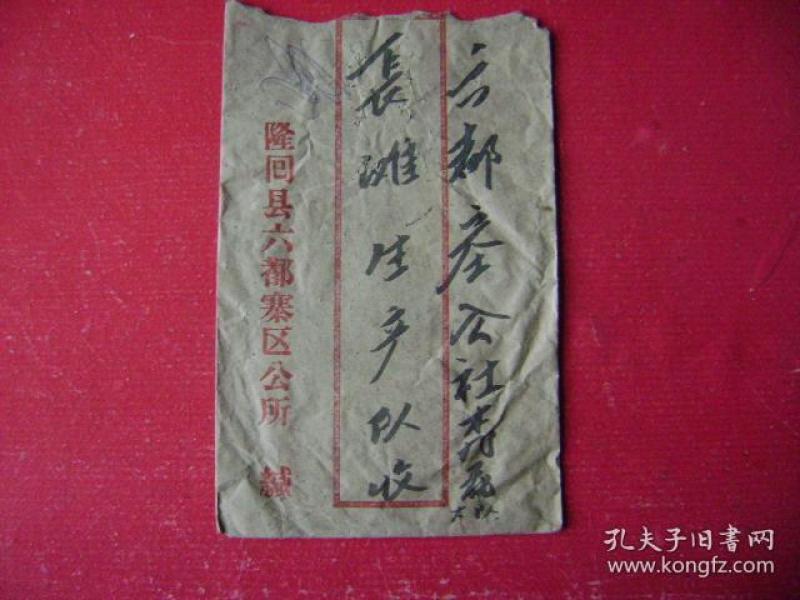 六都寨公社
大队
長滩生产队收
隆回县六都寨区公所 緘
孔夫子旧书网
www.kongfz.com